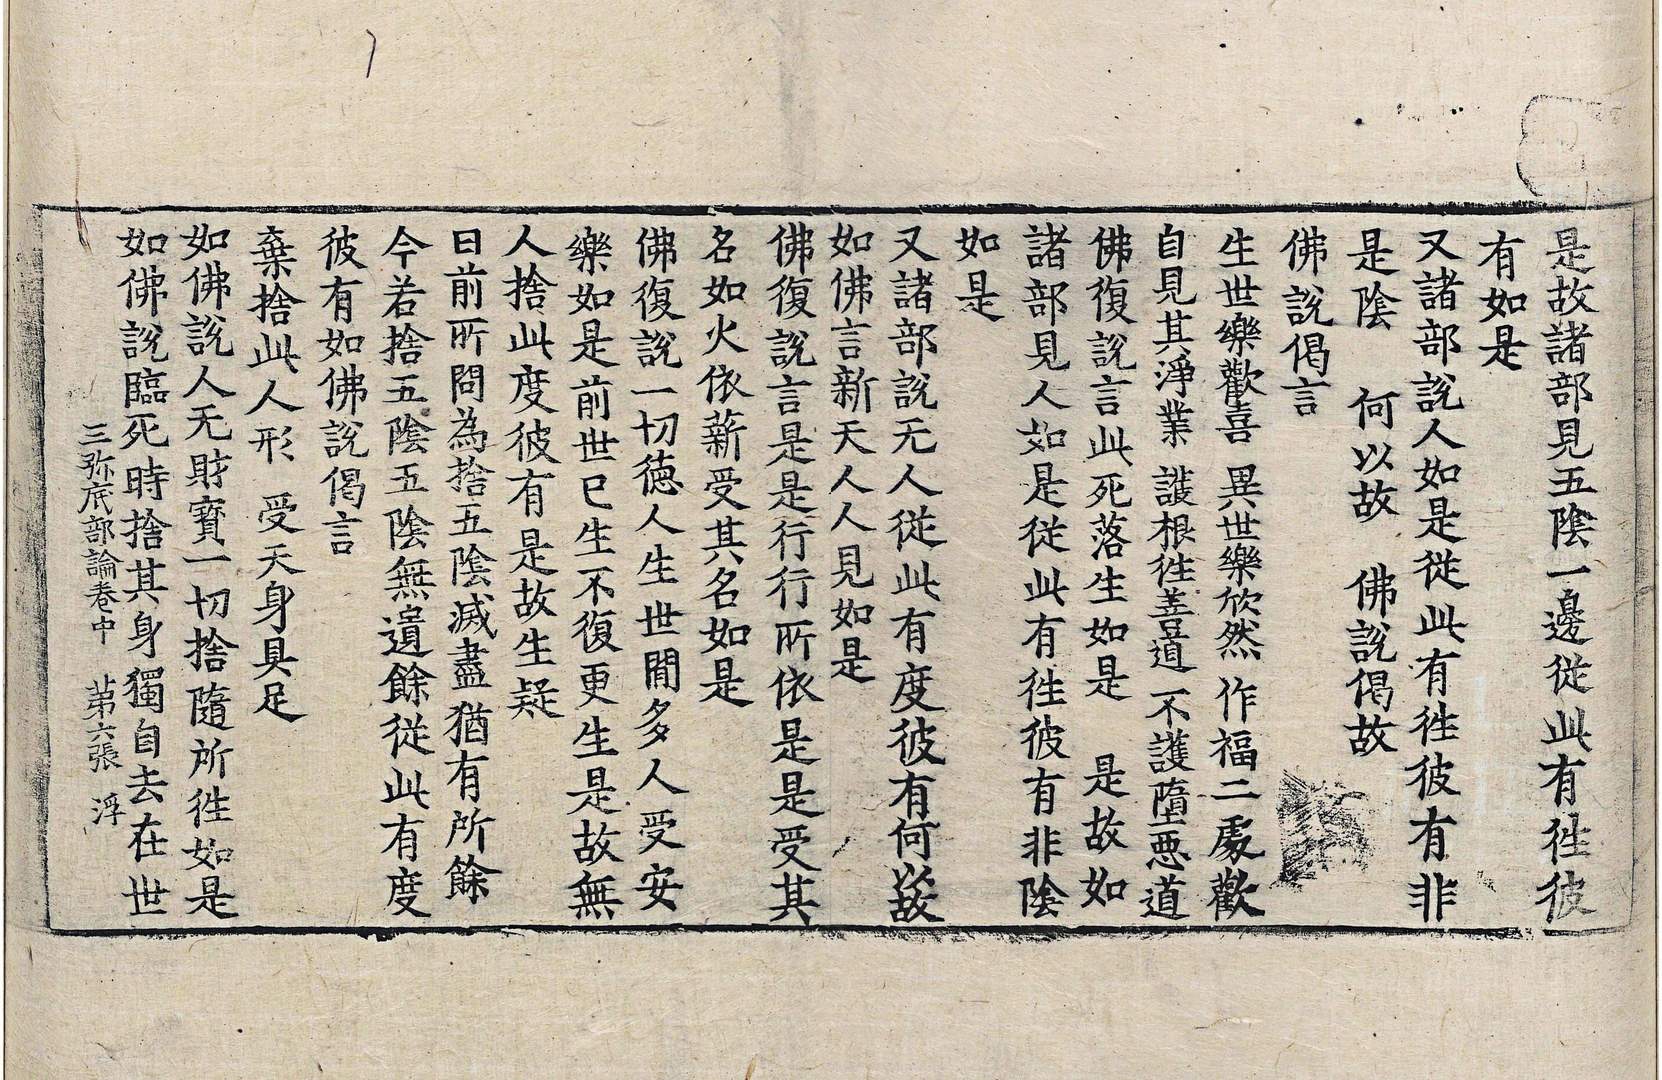 是故諸部見五陰一邊從此有徃彼
有如是
又諸部說人如是從此有徃彼有非
是陰　何以故　佛說偈故
佛說偈言
生世樂歡喜　異世樂欣然　作福二處歡
自見其淨業　護根徃善道　不護墮惡道
佛復說言此死落生如是　是故如
諸部見人如是從此有徃彼有非陰
如是
又諸部說无人從此有度彼有何以故
如佛言新天人人見如是
佛復說言是是行行所依是是受其
名如火依薪受其名如是
佛復說一切德人生世間多人受安
樂如是前世已生不復更生是故無
人捨此度彼有是故生疑
曰前所問為捨五陰滅盡猶有所餘
今若捨五陰五陰無遺餘從此有度
彼有如佛說偈言
棄捨此人形　受天身具足
如佛說人无財寶一切捨隨所徃如是
如佛說臨死時捨其身獨自去在世
三弥底部論卷中　苐六張　浮